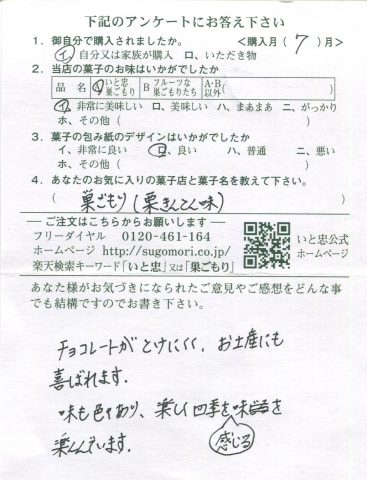 下記のアンケートにお答え下さい
1．御自分で購入されましたか。 ＜購入月（ 7 ）月＞
イ、自分又は家族が購入 ロ、いただき物
2．当店の菓子のお味はいかがでしたか
品 名 A いと忠巣ごもり B フルーツな巣ごもりたち A･B以外（ ）
イ、非常に美味しい ロ、美味しい ハ、まあまあ ニ、がっかり
ホ、その他（ ）
3．菓子の包み紙のデザインはいかがでしたか
イ、非常に良い ロ、良い ハ、普通 ニ、悪い
ホ、その他（ ）
4．あなたのお気に入りの菓子店と菓子名を教えて下さい。
（ 巣ごもり（栗きんとん味） ）
― ご注文はこちらからお願いします ―
フリーダイヤル 0120-461-164
ホームページ http://sugomori.co.jp/
楽天検索キーワード「いと忠」又は「巣ごもり」
いと忠公式
ホームページ
あなた様がお気づきになられたご意見やご感想をどんな事
でも結構ですのでお書き下さい。
チョコレートがとけにくく、お土産にも
喜ばれます。
味も色々あり、楽しく四季を味を
感じる
楽しんでいます。